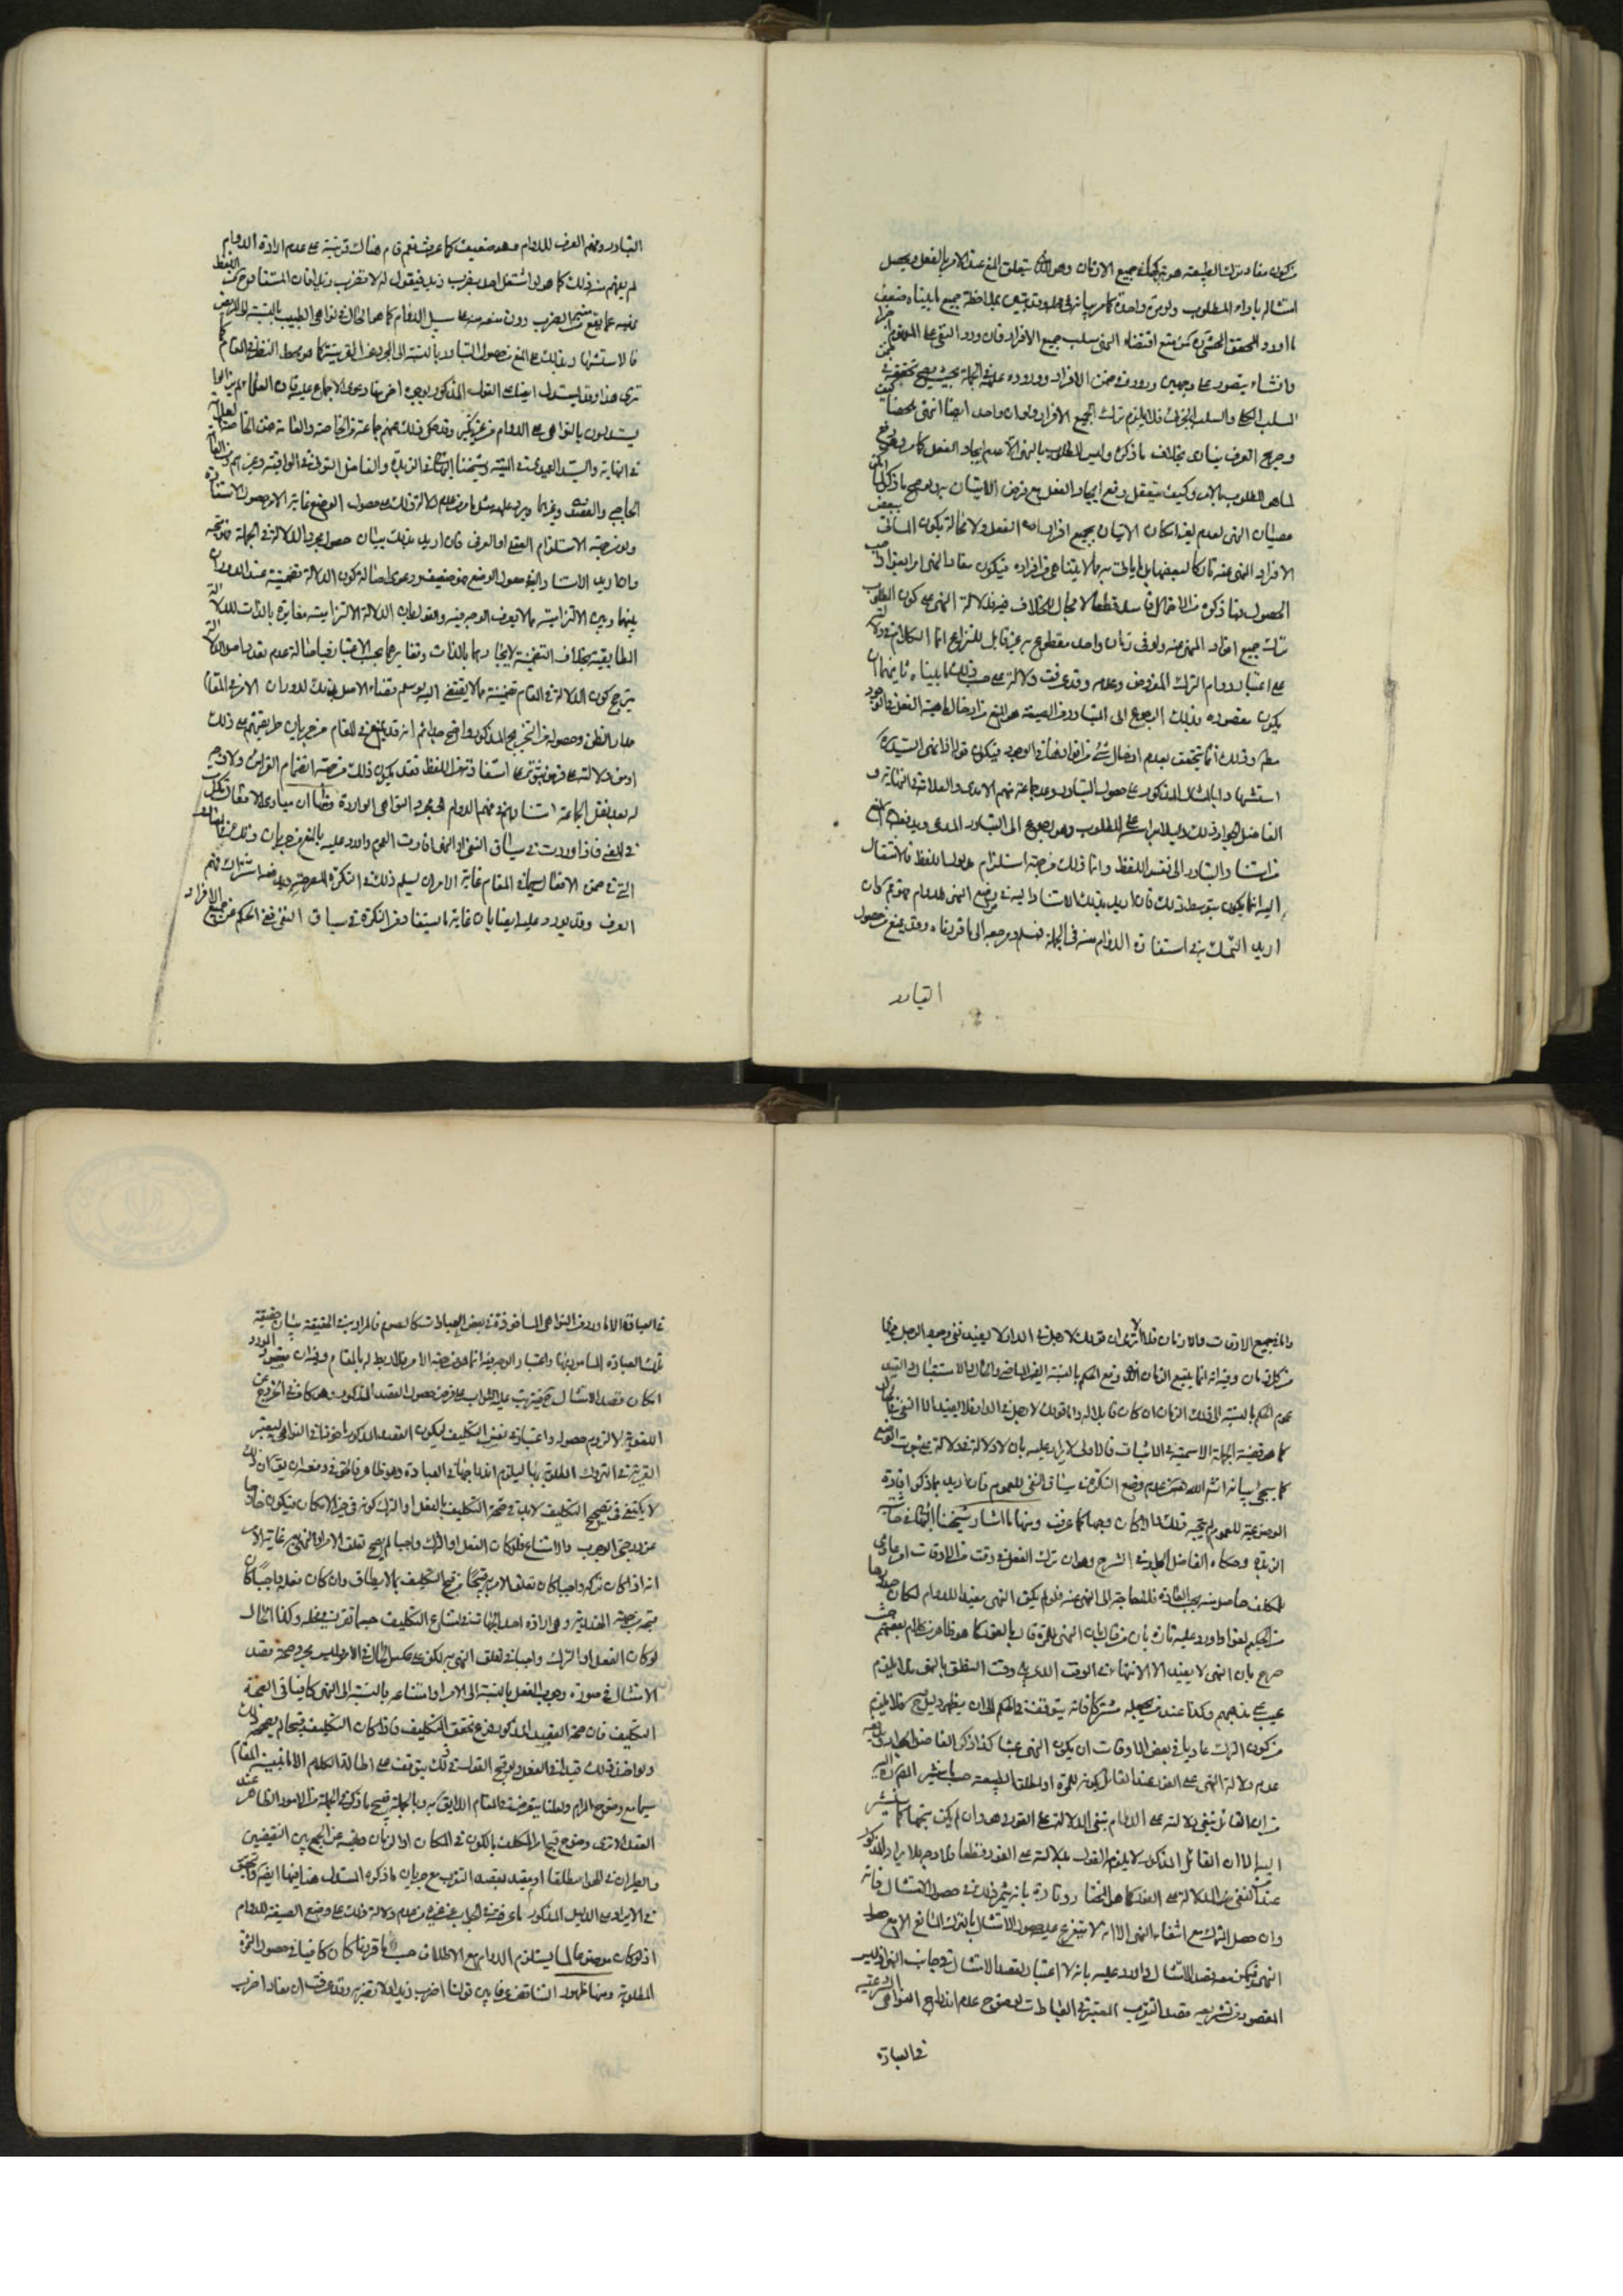 من كون مفاد ترك الطبيعة هو تركها في جميع الازمان وهو الذي يتعلق المنع عند الامر بالفعل ويحصل
امتثاله باداء المطلوب ولو مرة واحدة كما مر بيانه في محله وقد تبين بملاحظة جميع ما بيناه ضعف
ما اورد المحقق المحشي من منع اقتضاء النهي سلب جميع الافراد فان ورود النفي على المفهوم
وانشاءه يتصور على وجهين وروده في ضمن الافراد ووروده عليه في الجملة بحيث يصح تحققه في
السلب الكلي والسلب الجزئي فلا يلزم ترك جميع الافراد ولو ان واحد ايضا انتهى ملخصا
وصريح العرف ينادي بخلاف ما ذكره وليس المطلوب بالنهي الا عدم ايجاد الفعل كما مر
لما هو المطلوب بالامر وكيف يتعقل رفع ايجاد الفعل مع فرض الاتيان به ولو صح ما ذكر
عصيان النهي لعدم امكان الاتيان بجميع افراد الفعل ولا محالة يكون المكلف
الافراد المنهي عنه تاركا لبعضها بل لما لا يتناهى من افراده فيكون مفاد النهي امرا
الحصول فما ذكره من الاحتمال فاسد قطعا لا مجال للخلاف فيه فدلالة النهي على كون المطلوب
ترك جميع افراد المنهي عنه ولو في زمان واحد مقطوع به غير قابل للنزاع انما الكلام في دلالته
على اعتبار دوام الترك المفروض وعدمه وقد عرفت دلالته على حسب ما بيناه ثانيهما ان
يكون مقصوده بذلك الرجوع الى التبادر فان الصيغة هو المنع من ادخال ماهية الفعل في الوجود
مطلقا وذلك انما يتحقق بعدم ادخال شيء من افرادها في الوجود فيكون قوله اذا نهى السيد
استشهادا بالمثال المذكور على حصول التبادر وعن جماعة منهم الامدي والعلامة في النهاية و
الفاضل الجواد ذلك دليلا براسه على المطلوب وهو رجوع الى التبادر المدعى ويدفعه المنع
من استناد التبادر الى نفس اللفظ وانما ذلك من جهة استلزام مدلول اللفظ فالانتقال
اليه انما يكون بتوسط ذلك فان اريد بذلك الاستناد اليه في وضع النهي للدوام فهو غير كاف
اريد التمسك به في استفادة الدوام منه في الجملة فمسلم ومرجعه الى ما قررناه وقد يمنع من حصول
التبادر
التبادر وفهم العرف للدوام وهو ضعيف كما عرفت نعم لو قام هناك قرينة على عدم ارادة الدوام
لم يفهم منه ذلك كما هو لو اشتغل احد بضرب زيد فيقول له لا تضرب زيدا فان المستفاد
منعه عما يقع من الضرب دون منعه منه على سبيل الدوام كما هو الحال في نواهي الطبيب بالنسبة الى المريض
فالاستشهاد بذلك على المنع من حصول التبادر بالنسبة الى المجرد عن القرينة كما هو محط النظر في المقام كما
ترى هذا وقد يستدل ايضا على القول المذكور بوجوه اخر منها دعوى الاجماع عليه فان العلماء لم يزالوا
يستدلون بالنواهي على الدوام من غير نكير وقد حكى ذلك عنهم جماعة من الخاصة والعامة فمن الخاصة العلامة
في النهاية والسيد العميدي في المنية وشيخنا البهائي في الزبدة والفاضل التوني في الوافية وغيرهم ومن العامة
الحاجبي والعضدي وغيرهما ويرد عليه مثل ما مر من عدم دلالة ذلك على حصول الوضع غاية الامر حصول الاستفادة
ولو من جهة الاستلزام العقلي او العرفي فان اريد بذلك بيان حصول مجرد الدلالة في الجملة فمتجه
وان اريد الاستناد اليه في حصول الوضع فهو ضعيف ودعوى اصالة كون الدلالة تضمنية عند الدوران
بينها وبين الالتزامية مما لا يعرف الوجه فيه والقول بان الدلالة الالتزامية مغايرة بالذات للدلالة
المطابقية بخلاف التضمنية لاتحادهما بالذات وتغايرهما بحسب الاعتبار فباصالة عدم تعدد اصل الدلالة
يترجح كون الدلالة في المقام تضمنية مما لا يقتضي اليه ولو سلم اقتضاء الاصل ذلك لدوران الامر في المقام
مدار الظن وحصوله من الترجيح المذكور واضح
اذ من دلالته عليه فرع ثبوت كون استفادتهم من اللفظ فقد يكون ذلك من جهة انضمام القرائن ولا
له بعد نقل الجماعة استنادهم في فهم الدوام الى مجرد النواهي الواردة ومنها ان مبادي الافعال نكرات
في المعنى فاذا وردت في سياق النفي او النهي افادت العموم واورد عليه بالمنع من جريان ذلك في
التي في ضمن الافعال سيما في المقام غاية الامر ان يسلم ذلك في النكرة المصرحة
العرف وقد يورد عليه ايضا بان غاية ما يستفاد من النكرة في سياق النفي نفي الحكم عن جميع الافراد
واما في جميع الاوقات والازمان فلا الا ترى ان قولك لا رجل في الدار لا يفيد نفي وجود الرجل فيها
في كل زمان وفيه انه انما يتبع الزمان الذي وقع الحكم بالنسبة اليه من الماضي والحال والاستقبال والتفيد
عموم الحكم بالنسبة الى ذلك الزمان ان كان قابلا له واما قولك لا رجل في الدار فلا يفيد الا النفي في الحال
كما هو قضية الجملة الاسمية في الاثبات فالاولى الايراد عليه بان لا دلالة فيه على ثبوت الوضع
كما سيجيء بيانه انشاء الله من عدم وضع النكرة في سياق النفي للعموم فان اريد بما ذكر افادة
الوضعية للعموم لم يتجه ذلك والا كان وجها كما عرفت ومنها ما اشار شيخنا البهائي في حاشية
الزبدة وحكاه الفاضل الجواد في الشرح وهو ان ترك الفعل في وقت من الاوقات امر عادي
للمكلف حاصل منه بحسب العادة فلا حاجة الى النهي عنه فلو لم يكن النهي مفيدا للدوام لكان صدورها
من الحكيم لغوا واورد عليه تارة بان من قال بان النهي للمرة قال بالفور كما هو ظاهر كلام بعضهم حيث
صرح بان النهي لا يفيد الا الانتهاء في الوقت الذي يلي وقت النطق بالنهي فلا يلزم
عبث على مذهبهم وكذا عند من يجعله مشتركا فانه يتوقف في الحكم الى ان يظهر دليل فلا يلزم
من كون الترك عاديا في بعض الاوقات ان يكون النهي عبثا كذا ذكر الفاضل الجواد
عدم دلالة النهي على الفور عند القائل بكونه للمرة او لمطلق الطبيعة حسبما سنشير اليه
من ان القائل بنفي دلالته على الدوام ينفي الدلالة على الفور وهو وان لم يكن متجها كما سنشير
اليه الا ان القائل المذكور لا يلزمه القول بدلالته على الفور قطعا فلا وجه للايراد المذكور
عند النفي من الدلالة على الفور كما هو المختار وتارة بانه يثمر ذلك في حصول الامتثال فانه
وان حصل الترك مع انتفاء النهي الا انه لا يتفرع عليه حصول الامتثال بالترك
النهي فيمكن معه قصد الامتثال واورد عليه بانه لا اعتبار بقصد الامتثال في جانب النهي اذ ليس
المقصود من تشريعه قصد التقرب المعتبر في الطاعات لوضوح عدم اندراج النواهي الشرعية
في العبادة
في العبادة الا ما ورد من النواهي الماخوذة في بعض العبادات كالصوم فالمراد به في الحقيقة بيان حقيقة
تلك العبادة المامور بها واعتبار الوجه فيه انما هو من جهة الامر فلا ربط له بالمقام وفيه ان مقصود المورد
امكان قصد الامتثال فيترتب عليه الثواب على فرض حصول القصد المذكور وهو كاف في الخروج عن
اللغوية لا لزوم حصوله واعتباره في نفس التكليف ليكون القصد المذكور ماخوذا في النواهي ليعتبر
القربة في التروك المطلوبة بها ليلزم اندراجها في العبادة وهو ظاهر فالحق في دفعه ان يقال ان ذلك
لا يكتفى في تصحيح التكليف لابد في صحة التكليف بالفعل او الترك كونه في حيز الامكان فيكون خارجا
عن درجتي الوجوب والامتناع فلو كان الفعل او الترك واجبا لم يصح تعلق الامر او النهي به غاية الامر
انه اذا كان تركه واجبا كان تعلق الامر به قبيحا من قبيل التكليف بما لا يطاق وان كان فعله واجبا كان
قبحه من جهة الهذرية وهو اراده احد الجهات في امتناع التكليف حسبما تقرر في محله وكذا الحال
لو كان الفعل او الترك واجبا في تعلق النهي به لكن على عكس الحال في الامر وليس مجرد صحة قصد
الامتثال في صورة وجوب الفعل بالنسبة الى الامر او امتناعه بالنسبة الى النهي كافيا في الصحة
التكليف فان صحة القصد المذكور فرع تحقق التكليف فاذا كان التكليف قبيحا لم يصححه ذلك
ولو اضفت ذلك قيدا في الفعل ولو قبح القول بذلك يتوقف على اطالة الكلام
سيما مع وضوح المرام ولعلنا نتعرضه في المقام اللايق به وبالجملة قبح ما ذكر في الجملة من الامور الظاهر عند
العقل الا ترى وضوح قبح امر المكلف بالكون في المكان او الزمان ونهيه عن الجمع بين النقيضين
والطيران في الهواء مطلقا او بقيد لقصد التقرب مع جريان ما ذكره المستدل هنا فيها ايضا والتحقيق
في الايراد على الدليل المذكور ما عرفت في الجواب عن غيره من عدم دلالة ذلك على وضع الصيغة للدوام
اذ لو كان موضوعا لما يستلزم الدوام مع الاطلاق حسب ما قررنا كان كافيا في حصول الثمرة
المطلوبة ومنها ظهور التناقض عرفا بين قولنا اضرب زيدا ولا تضربه وقد عرفت ان مفاد اضرب